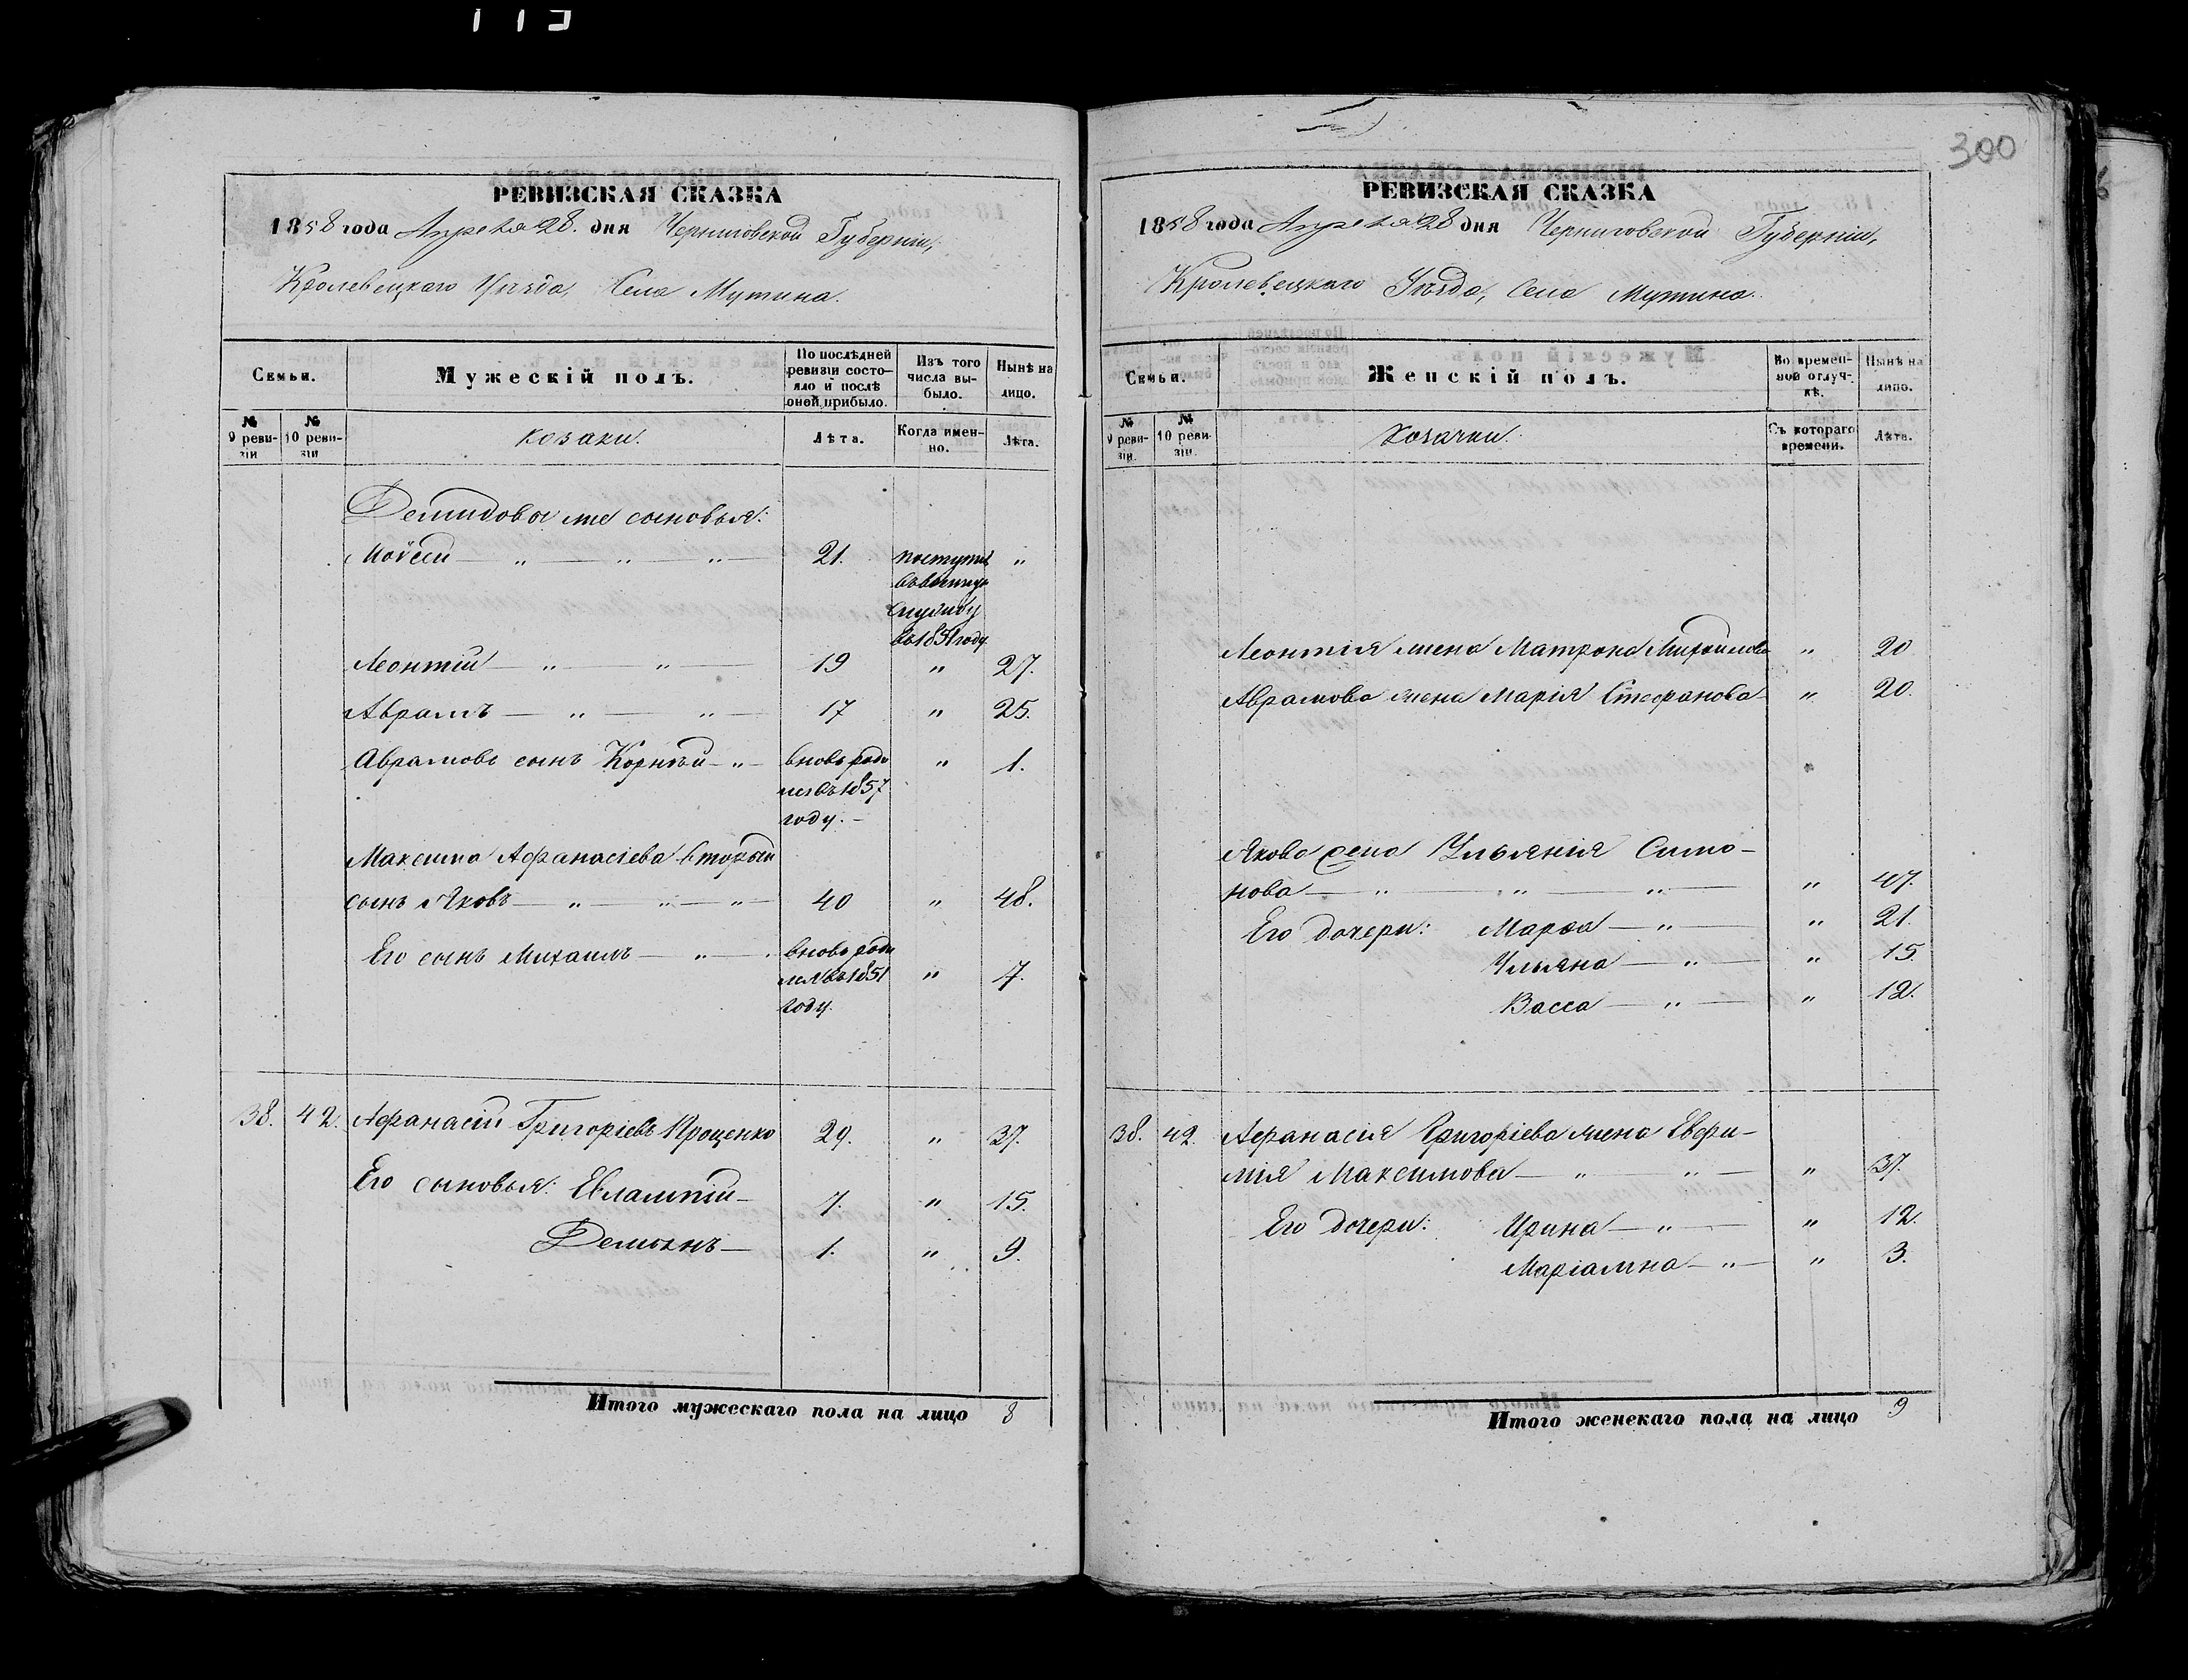 300
РЕВИЗСКАЯ СКАЗКА
1858 года Апреля 28. дня Черниговской Губерніи,
Кролевецкаго Уѣзда, Села Мутина.
Семьи.
Мужескій полъ.
По послѣдней ревизіи состояло и послѣ оней прибыло.
Изъ того числа выбыло.
Нынѣ на лицо.
№ 9 ревизіи
№ 10 ревизіи
Козаки.
Лѣта.
Когда именно.
Лѣта.
Демидовы же сыновья:
Моѵсей — „ — „ — „ — 21. поступил „
въ военную
службу
въ 1851 году
Леонтій — „ — „ — 19 „ 27.
Аврамъ — „ — „ — 17 „ 25.
Аврамовъ сынъ Корнѣй — „ — вновь роди „ 1.
лся въ 1857
году. —
Максима Афанасіева вторый
сынъ Яковъ — „ — „ — „ — 40 „ 48.
Его сынъ Михаилъ — „ — вновь роди
лся въ 1851 „ 7.
году.
38. 42. Афанасій Григоріевъ Проценко 29. „ 37.
Его сыновья: Евлампій — 7. „ 15.
Демьянъ — 1. „ 9.
Итого мужескаго пола на лицо 8
РЕВИЗСКАЯ СКАЗКА
1858 года Апреля 28 дня Черниговской Губерніи,
Кролевецкаго Уѣзда, Села Мутина.
Семьи.
Женскій полъ.
Во временной отлучкѣ.
Нынѣ на лицо.
№ 9 ревизіи.
№ 10 ревизіи.
Козачки.
Съ котораго времени.
Лѣта.
Леонтія жена Матрона Михайлова „ 20
Аврамова жена Марія Стефанова — „ 20.
Якова жена Ульянія Симо-
нова — „ — „ — „ — „ 47.
Его дочери: Марѳа — „ — „ 21.
Ульяна — „ — „ 15.
Васса — „ — „ 12.
38. 42. Афанасія Григоріева жена Евфи-
мія Максимова — „ — „ — „ 37.
Его дочери: Ирина — „ — „ 12.
Маріамна — „ — „ 3.
Итого женскаго пола на лицо 9